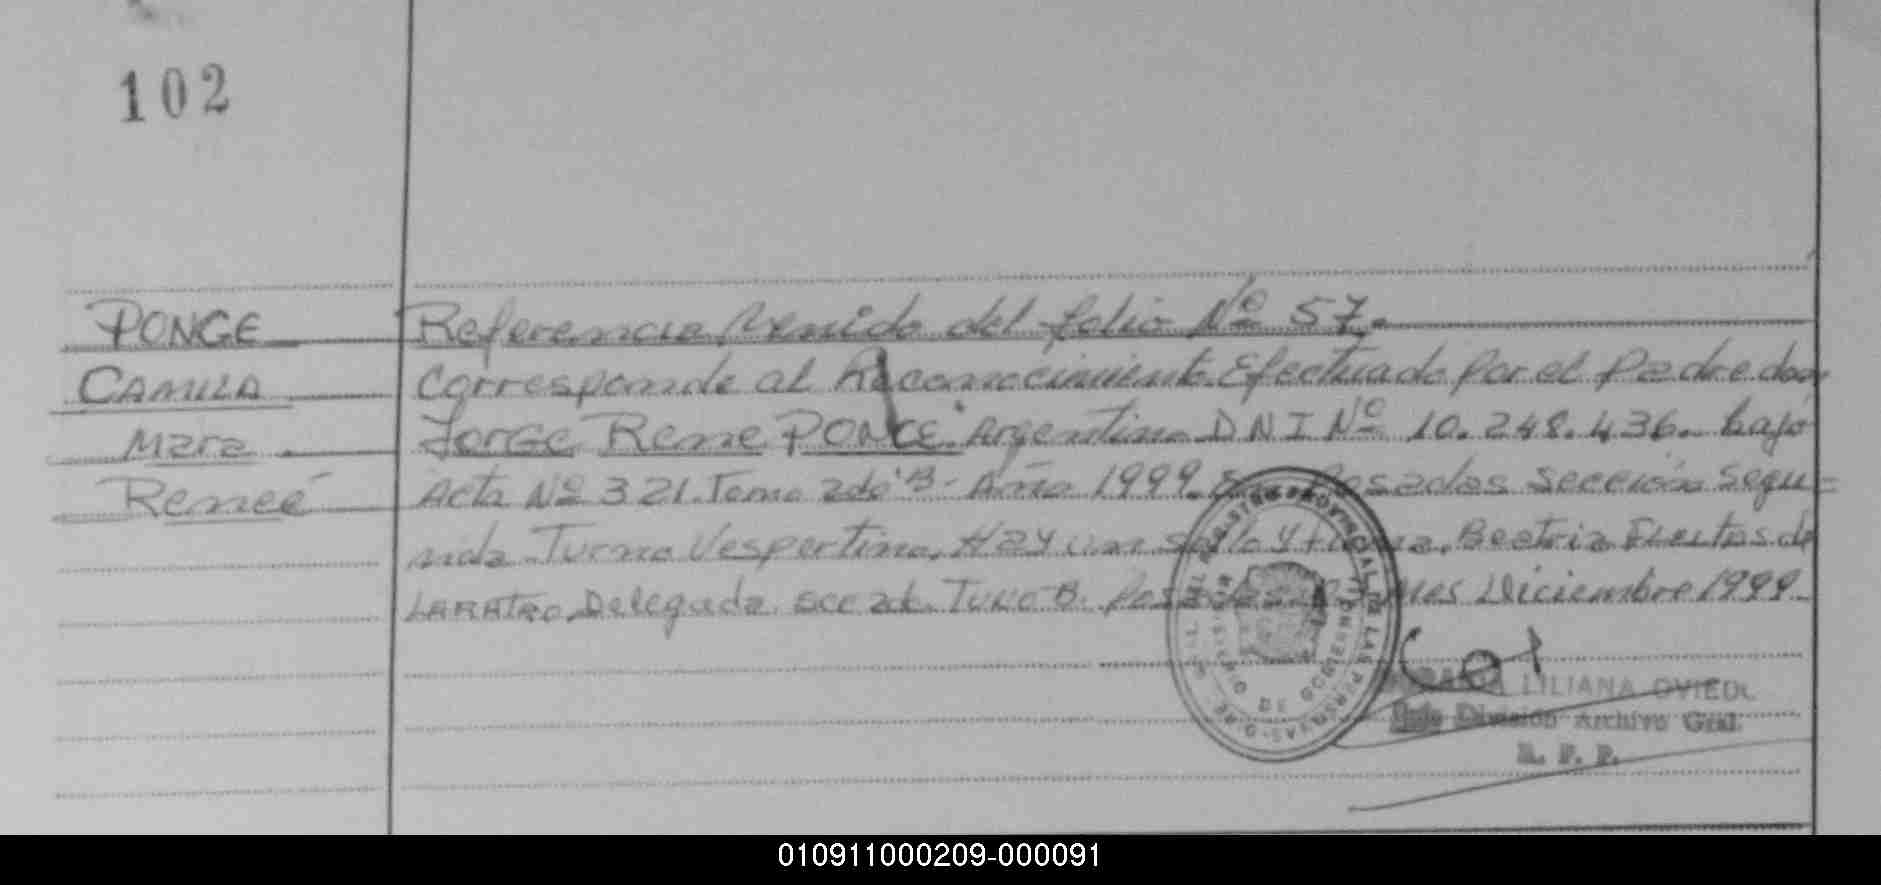 102
PONCE
CAMILA
Mara
Reneé
Referencia Venida del folio Nº 57.
Corresponde al Reconocimiento Efectuado por el Padre don
Jorge Rene PONCE Argentino DNI Nº 10.248.436. bajo
Acta Nº 321. Tomo 2do "B- Año 1999. Posadas Sección Segu-
nda Turno Vespertino, Hay un sello y firma, Beatriz de
Delegada Posadas mes Diciembre 1999.
LILIANA OVIEDO
División Archivo Gral.
R. P. P.
DEL REGISTRO PROVINCIAL DE LAS PERSONAS
MINISTERIO DE GOBIERNO
010911000209-000091